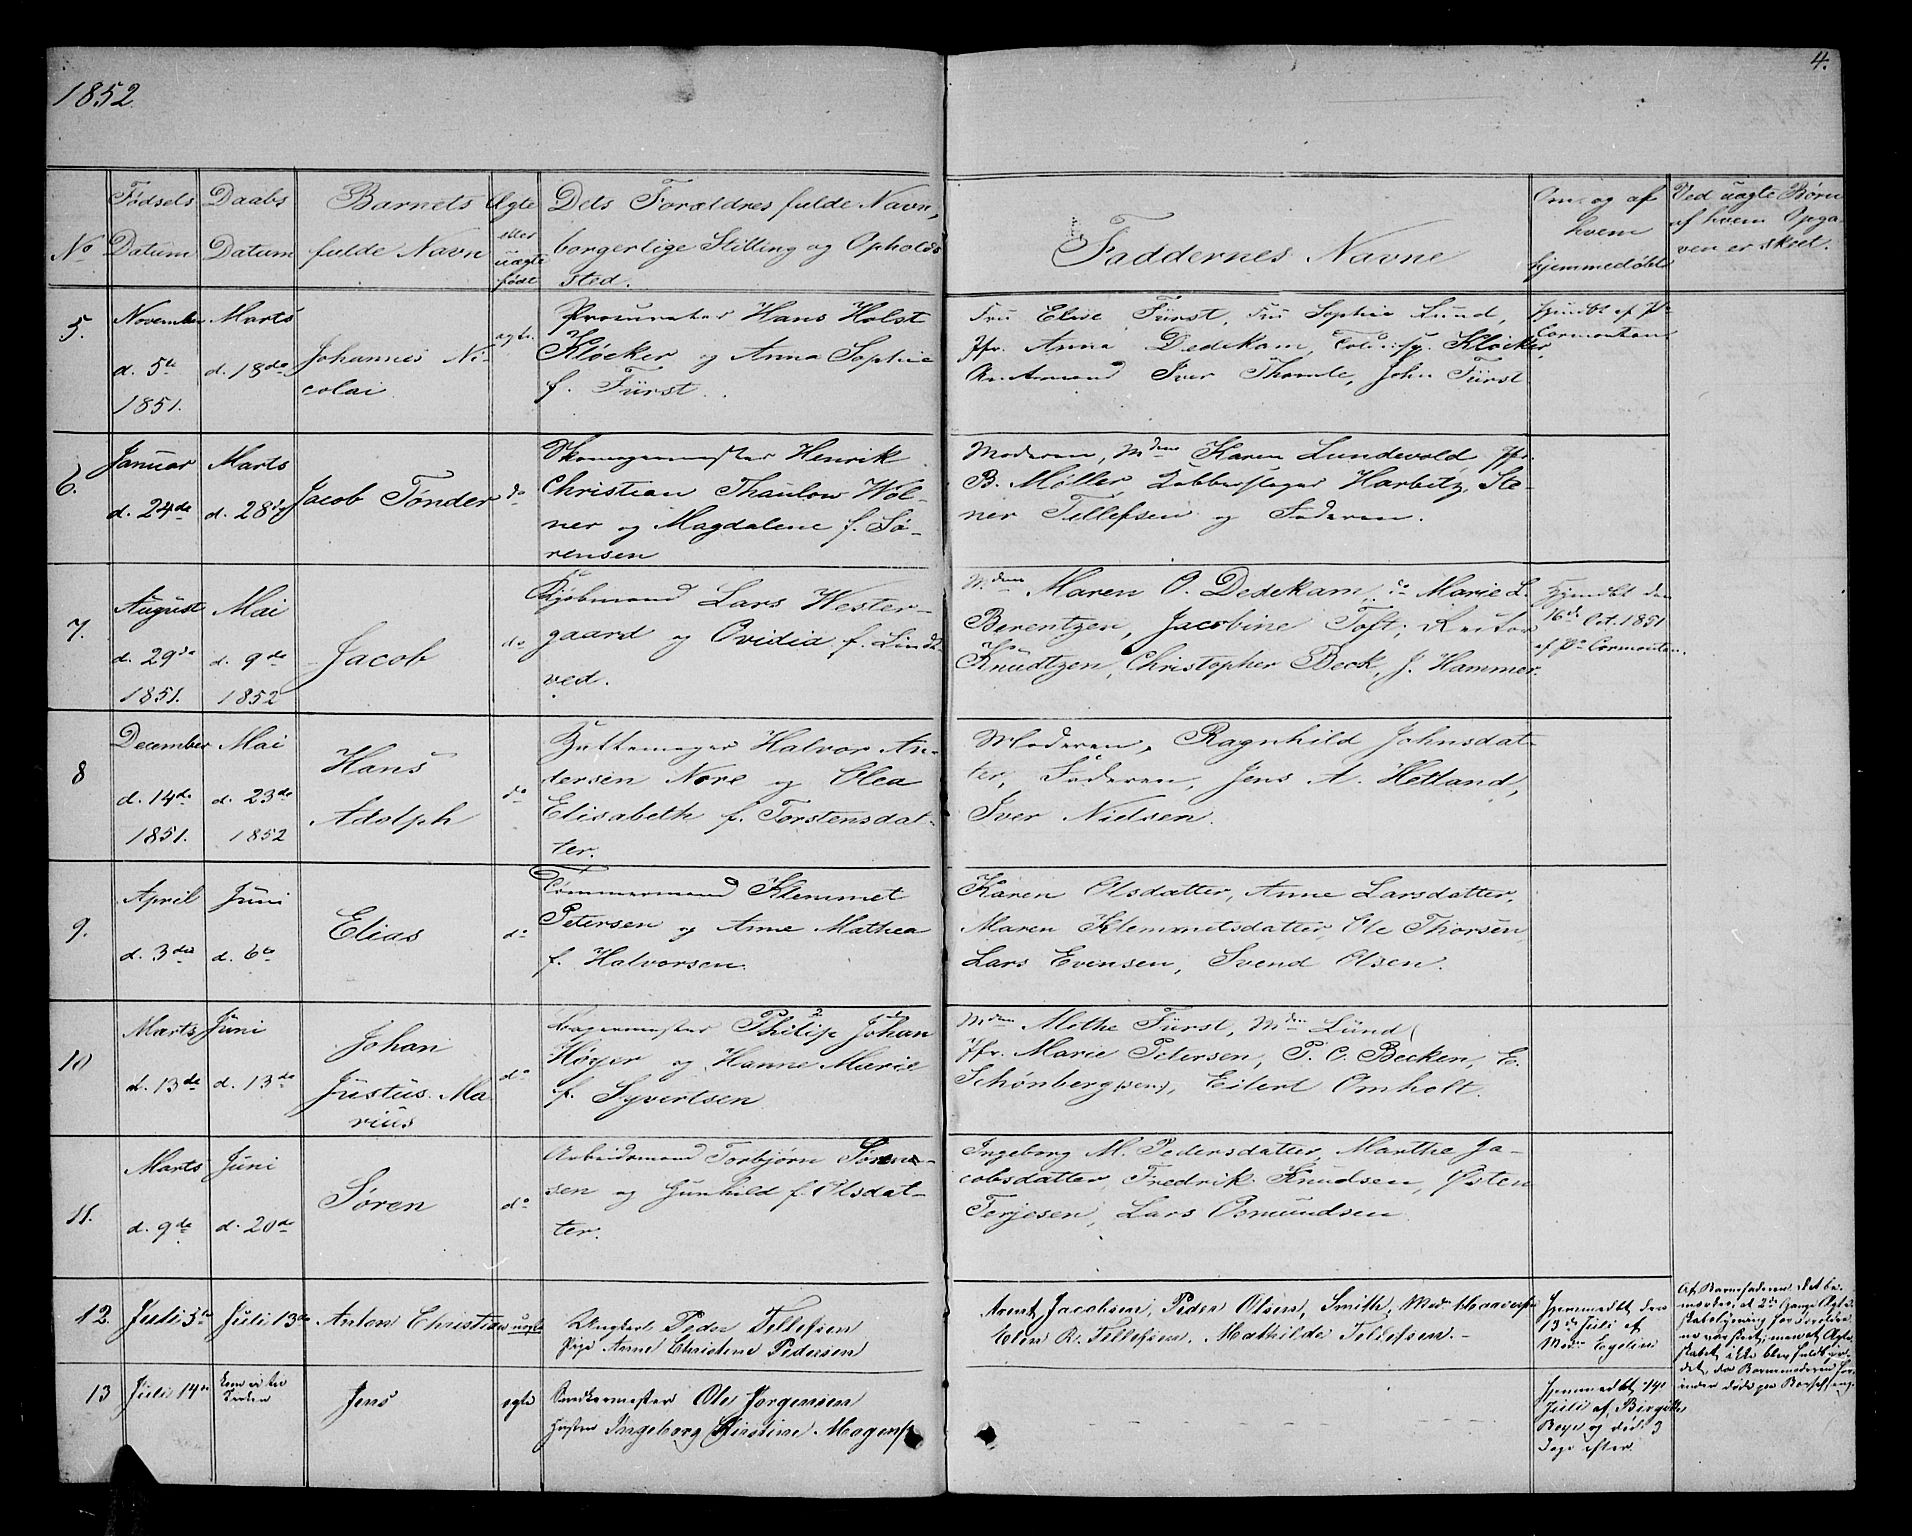 1852.
4.
No
Fødsels Datum
Daabs Datum
Barnets fulde Navn
Ægte eller uægte født
Dets Forældres fulde Navn, borgerlige Stilling og Opholdssted.
Faddernes Navne
Om og af hvem hjemmedøbt
Ved uægte Børn af hvem Opgaven er skeet.
5.
November d. 5te 1851.
Marts d. 18de
Johannes Nicolai
ægte.
Procurator Hans Holst
Kløcker og Anna Sophie
f. Fürst.
Fru Elise Fürst, Fru Sophie Lund,
Jfr. Anna Dedekam, Kløcker,
Iver Thomle, John Fürst
Hjmdbt af Pr Cormontan
6.
Januar d. 24de
Marts d. 28de
Jacob Tønder
do
Skomagermester Henrik
Christian Thaulow Wol-
ner og Magdalene f. Sø-
rensen
Moderen, Mdme Karen Lundevold, Jfr.
B. Møller, Kobberslager Harbitz, Ste-
ner Tellefsen og Faderen.
7.
August d. 29de 1851.
Mai d. 9de 1852
Jacob
do
Kjøbmand Lars Wester-
gaard og Ovidia f. Lindt-
ved.
Mdme Maren O. Dedekam, do Marie L.
Berentzen, Jacobine Toft, Rector
Knudtzen, Christopher Beck, J. Hammer.
Hjemdbt den
16de Oct. 1851
af Pr Cormontan.
8
December d. 14de 1851.
Mai d. 23de 1852
Hans
Adolph
do
Hattemager Halvor An-
dersen Nore og Olea
Elisabeth f. Torstensdat-
ter.
Moderen, Ragnhild Johnsdat-
ter, Faderen, Jens A. Hetland,
Iver Nielsen.
9.
April d. 3die
Juni d. 6te
Elias
do
Tømmermand Klemmet
Petersen og Anne Mathea
f. Halvorsen.
Karen Olsdatter, Anne Larsdatter,
Maren Klemmetsdatter, Ole Thorsen,
Lars Evensen, Svend Olsen.
10
Marts d. 13de
Juni d. 13de
Johan
Justus Ma
rius
do
Bagermester Philip Johan
Høyer og Hanne Marie
f. Syvertsen
Mdme Mothe Fürst, Mdme Lund
Jfr. Marie Petersen, P. C. Becken, E.
Schønberg (sen), Eilert Omholt.
11.
Marts d. 9de
Juni d. 20de
Søren
do
Arbeidsmand Torbjørn Søren-
sen og Gunhild f. Olsdat-
ter.
Ingeborg M. Pedersdatter, Marthe Ja-
cobsdatter, Fredrik Knudsen, Østen
Terjesen, Lars Osmundsen.
12.
Juli 5te
Juli 13de
Anton Christian
uægte
Ungkarl Peder Tellefsen
Pige Anne Christine Pedersen
Arent Jacobsen, Peder Olsen, Smith, Mad.
Elen R. Tellefsen, Mathilde Tellefsen.
Hjemmedbt den
13de Juli af
Mdme
Af Barnefaderen, det be-
mærkes, at 2de Gange
for Foreldre-
ne var skeet, men at Ægte-
skabet ikke blev fuldbyr-
det, da Barnemoderen for-
inden døde paa Barselseng.
13
Juli 14de
Jens
ægte
Snedkermester Ole Jørgensen
Hustru Ingeborg Kirstine Mogens
Hjemmedbt 14de
Juli af Birgitte
Boye og døde 3
Dage efter.